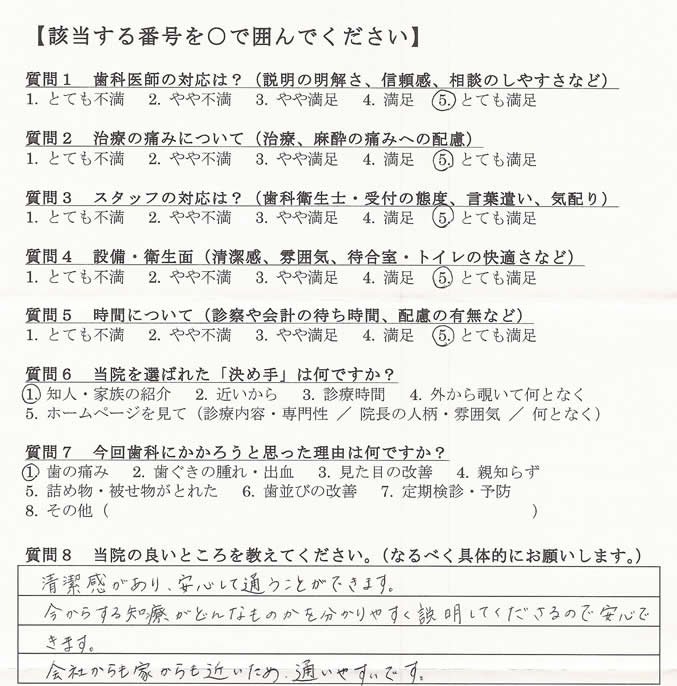 【該当する番号を○で囲んでください】
質問１　歯科医師の対応は？（説明の明解さ、信頼感、相談のしやすさなど）
1. とても不満　2. やや不満　3. やや満足　4. 満足　5. とても満足
質問２　治療の痛みについて（治療、麻酔の痛みへの配慮）
1. とても不満　2. やや不満　3. やや満足　4. 満足　5. とても満足
質問３　スタッフの対応は？（歯科衛生士・受付の態度、言葉遣い、気配り）
1. とても不満　2. やや不満　3. やや満足　4. 満足　5. とても満足
質問４　設備・衛生面（清潔感、雰囲気、待合室・トイレの快適さなど）
1. とても不満　2. やや不満　3. やや満足　4. 満足　5. とても満足
質問５　時間について（診察や会計の待ち時間、配慮の有無など）
1. とても不満　2. やや不満　3. やや満足　4. 満足　5. とても満足
質問６　当院を選ばれた「決め手」は何ですか？
1. 知人・家族の紹介　2. 近いから　3. 診療時間　4. 外から覗いて何となく
5. ホームページを見て（診療内容・専門性 ／ 院長の人柄・雰囲気 ／ 何となく）
質問７　今回歯科にかかろうと思った理由は何ですか？
1. 歯の痛み　2. 歯ぐきの腫れ・出血　3. 見た目の改善　4. 親知らず
5. 詰め物・被せ物がとれた　6. 歯並びの改善　7. 定期検診・予防
8. その他（　　　）
質問８　当院の良いところを教えてください。（なるべく具体的にお願いします。）
清潔感があり、安心して通うことができます。
今からする知療がどんなものかを分かりやすく説明してくださるので安心で
きます。
会社からも家からも近いため、通いやすいです。